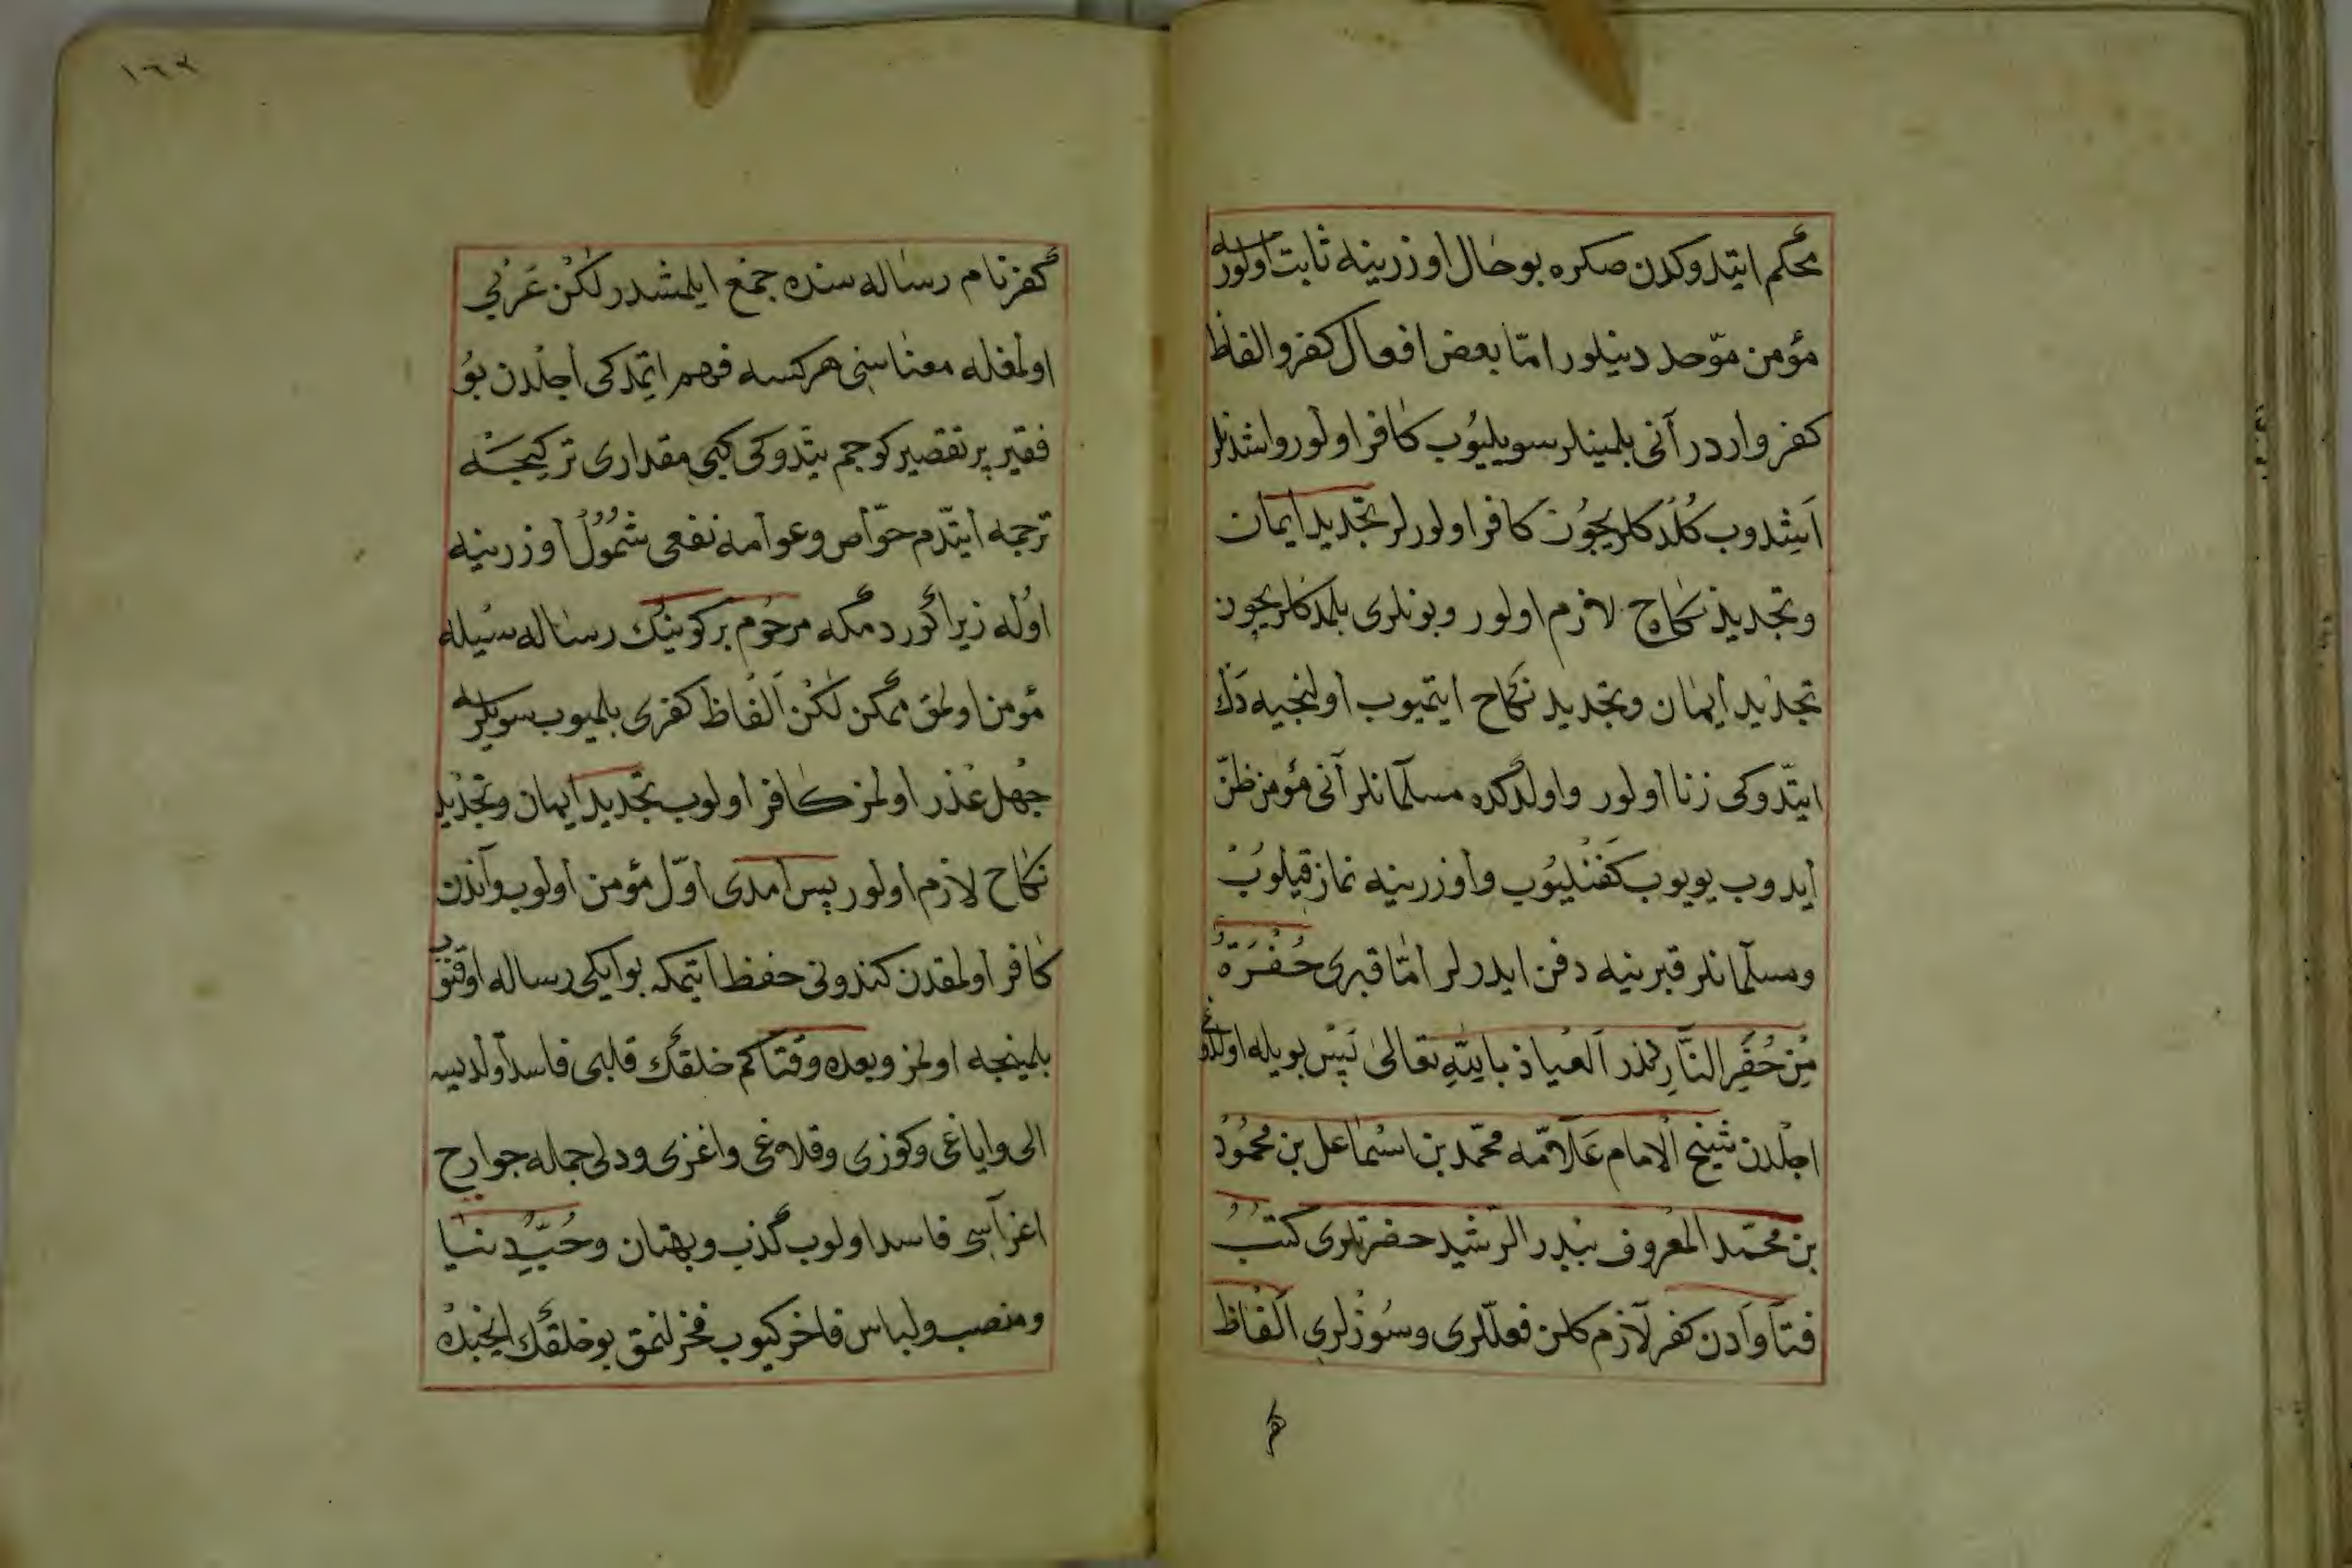 محكم ايتدوكدن صكره بوحال اوزرينه ثابت اولورسه
مؤمن موّحد دينلور امّا بعض افعال كفر والفاظ
كفر واردر آنى بلمينلر سويليوب كافر اولور واشدنلر
اشدوب كلدكلريچون كافر اولورلر تجديد ايمان
وتجديد نكاح لازم اولور وبونلرى بلمدكلريچون
تجديد ايمان وتجديد نكاح ايتميوب اولنجيه دك
ايتدوكى زنا اولور واولدكده مسلمانلر آنى مؤمن ظنّ
ايدوب يويوب كفنليوب واوزرينه نماز قيلوب
ومسلمانلر قبرينه دفن ايدرلر امّا قبرى حُفْرَةٌ
مِنْ حُفَرِ النَّارِ در العياذ بالله تعالى پس بويله اولدوغى
اجلدن شيخ الامام علاّمه محمّد بن اسماعل بن محمود
بن محمّد المعروف ببدر الرشيد حضرتلرى كتب
فتاوادن كفر لازم كلن فعللرى وسوزلرى الفاظ
كفر
كفر نام رساله سنده جمع ايلمشدر لكن عربى
اولمغله معناسنى هر كسه فهم ايتمدكى اجلدن بو
فقير پر تقصير كوجم يتدوكى كبى مقدارى تركيجه
ترجمه ايتدم حوّاص وعوامه نفعى شمول اوزرينه
اوله زيرا كوردمكه مرحوم بركوينك رساله سيله
مؤمن اولمق ممكن لكن الفاظ كفرى بلميوب سويلرسه
جهل عذر اولمز كافر اولوب تجديد ايمان وتجديد
نكاح لازم اولور پس امدى اوّل مؤمن اولوب واندن
كافر اولمقدن كندونى حفظ ايتمكه بو ايكى رساله اوقنوب
بلمينجه اولمز وبعده وقتاكم خلقك قلبى فاسد اولديسه
الى واياغى وكوزى وقلاغى واغزى ودلى جمله جوارح
اعزاسى فاسد اولوب كذب وبهتان وحبّ دنيا
ومنصب ولباس فاخر كيوب فخرلنمق بو خلقك ايچنده
١٦٢